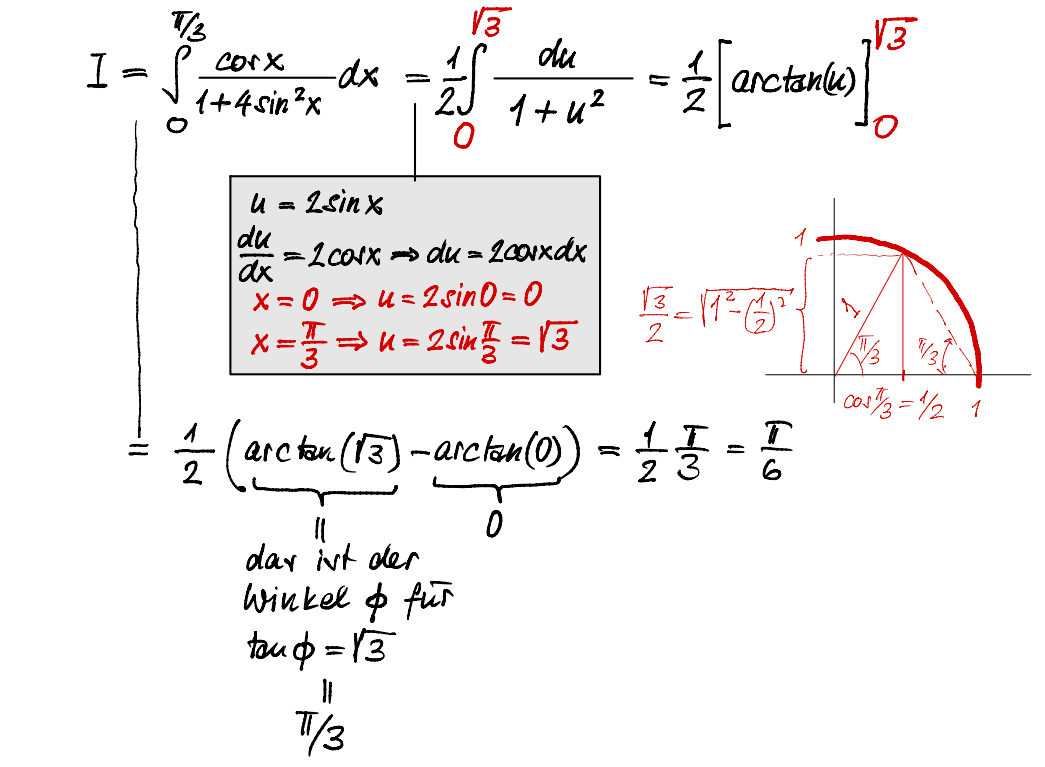 I = ∫₀^{π/3} cos x / (1 + 4 sin² x) dx = 1/2 ∫₀^{√3} du / (1 + u²) = 1/2 [arctan(u)]₀^{√3}
u = 2 sin x
du/dx = 2 cos x ⇒ du = 2 cos x dx
x = 0 ⇒ u = 2 sin 0 = 0
x = π/3 ⇒ u = 2 sin π/3 = √3
1
√3/2 = √(1² - (1/2)²)
1
π/3
π/3
cos π/3 = 1/2
1
= 1/2 (arctan(√3) - arctan(0)) = 1/2 π/3 = π/6
= 0
das ist der
Winkel ϕ für
tan ϕ = √3
=
π/3